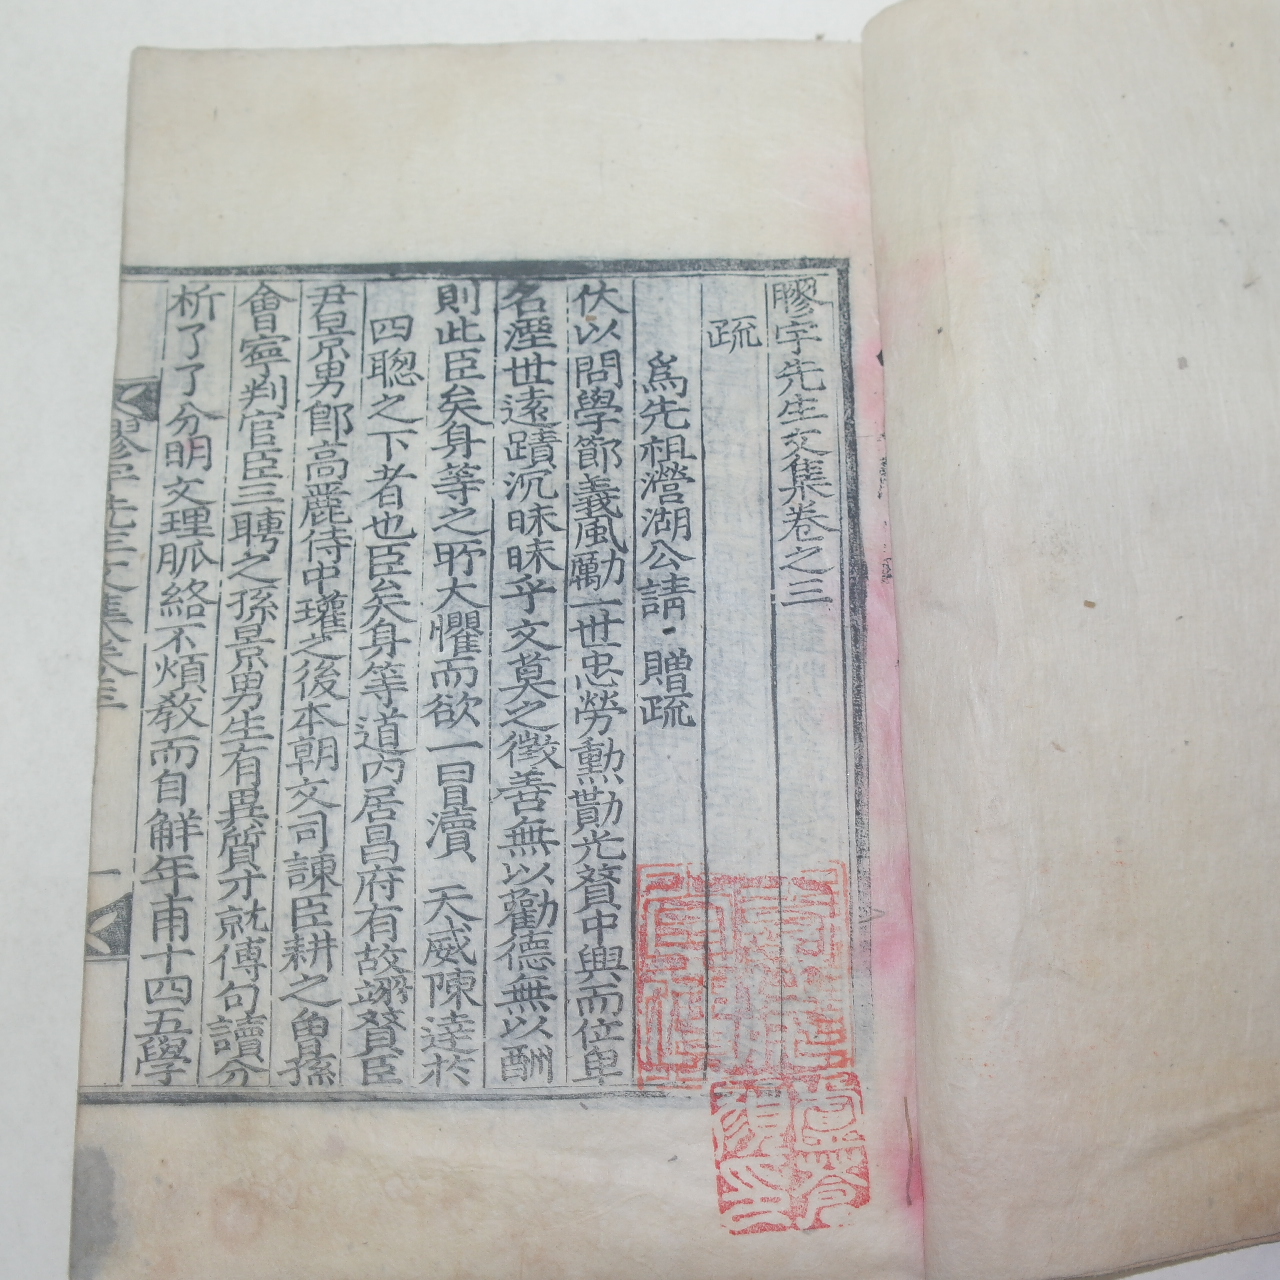 膠宇先生文集卷之三
疏
爲先祖瀯湖公請贈疏
伏以問學節義風勵一世忠勞勲勩光贊中興而位卑
名湮世遠蹟沉昧昧乎文莫之徵善無以勸德無以酬
則此臣矣身等之所大懼而欲一冒瀆天威陳達於
四聰之下者也臣矣身等道內居昌府有故諡贊臣
尹景男卽高麗侍中瓘之後本朝文司諫臣耕之曾孫
會寧判官臣三聘之孫景男生有異質才就傅句讀分
析了了分明文理脈絡不煩教而自解年甫十四五學
膠宇先生文集卷三
一